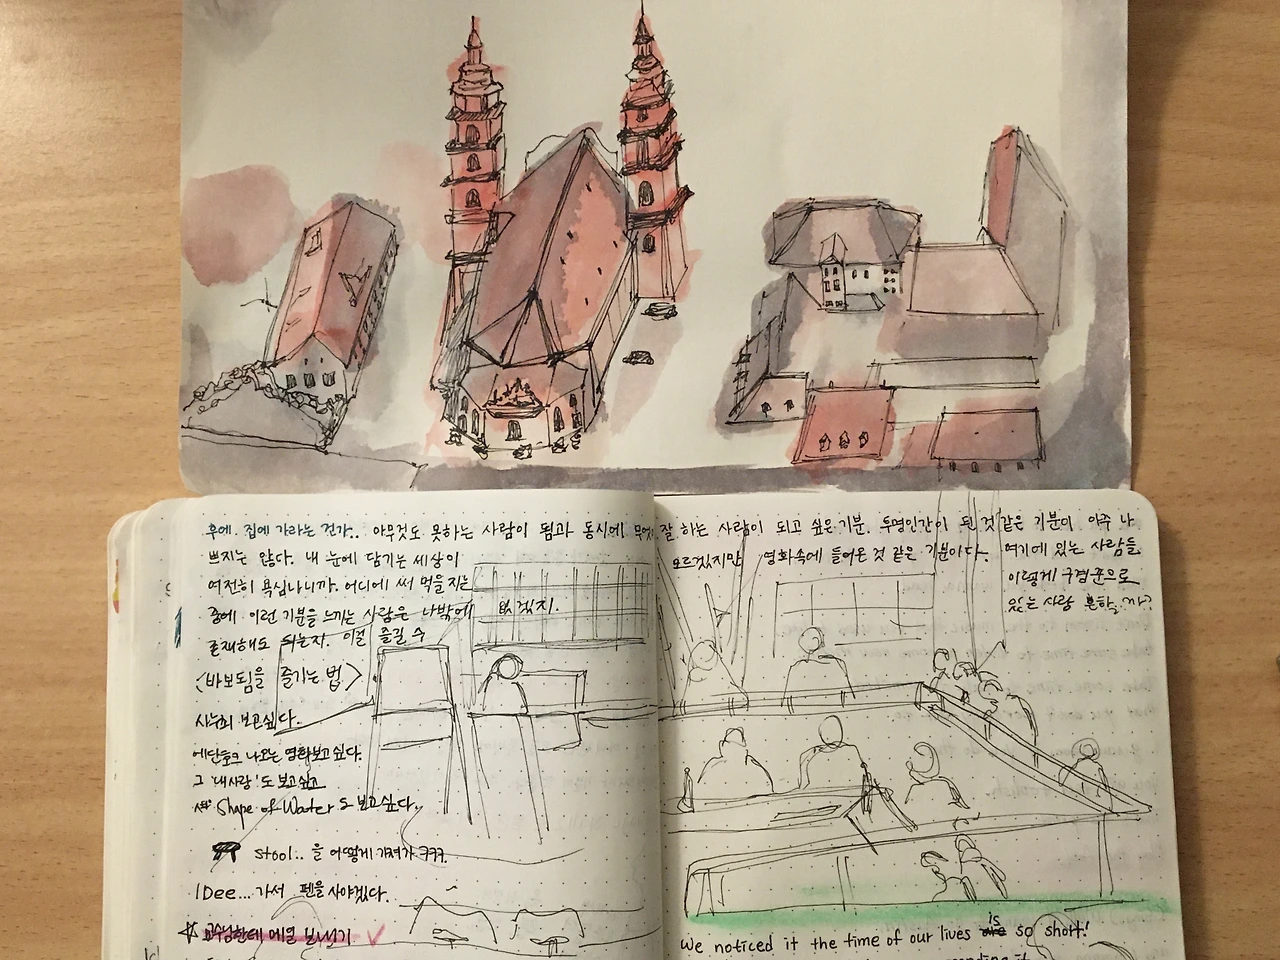 후에. 집에 가라는 건가.. 아무것도 못하는 사람이 됨과 동시에 무엇이든 잘 하는 사람이 되고 싶은 기분. 투명인간이 된 것 같은 기분이 아주 나
쁘지는 않다. 내 눈에 담기는 세상이
모르겠지만 영화속에 들어온 것 같은 기분이다. 여기에 있는 사람들
여전히 욕심나니까. 어디에 써 먹을지는
이렇게 구경꾼으로
중에 이런 기분을 느끼는 사람은 나밖에 없겠지.
있는 사람 흔할까?
존재해도 되는지. 이걸 즐길 수
<바보됨을 즐기는 법>
보고싶다.
에단호크 나오는 영화보고싶다.
그 '내사랑'도 보고싶고
Shape of Water도 보고싶다.
stool.. 을 어떻게 가져가 ㅋㅋㅋ.
IDee... 가서 펜을 사야겠다.
교수님한테 메일 보내기
is
We noticed it the time of our lives are so short!